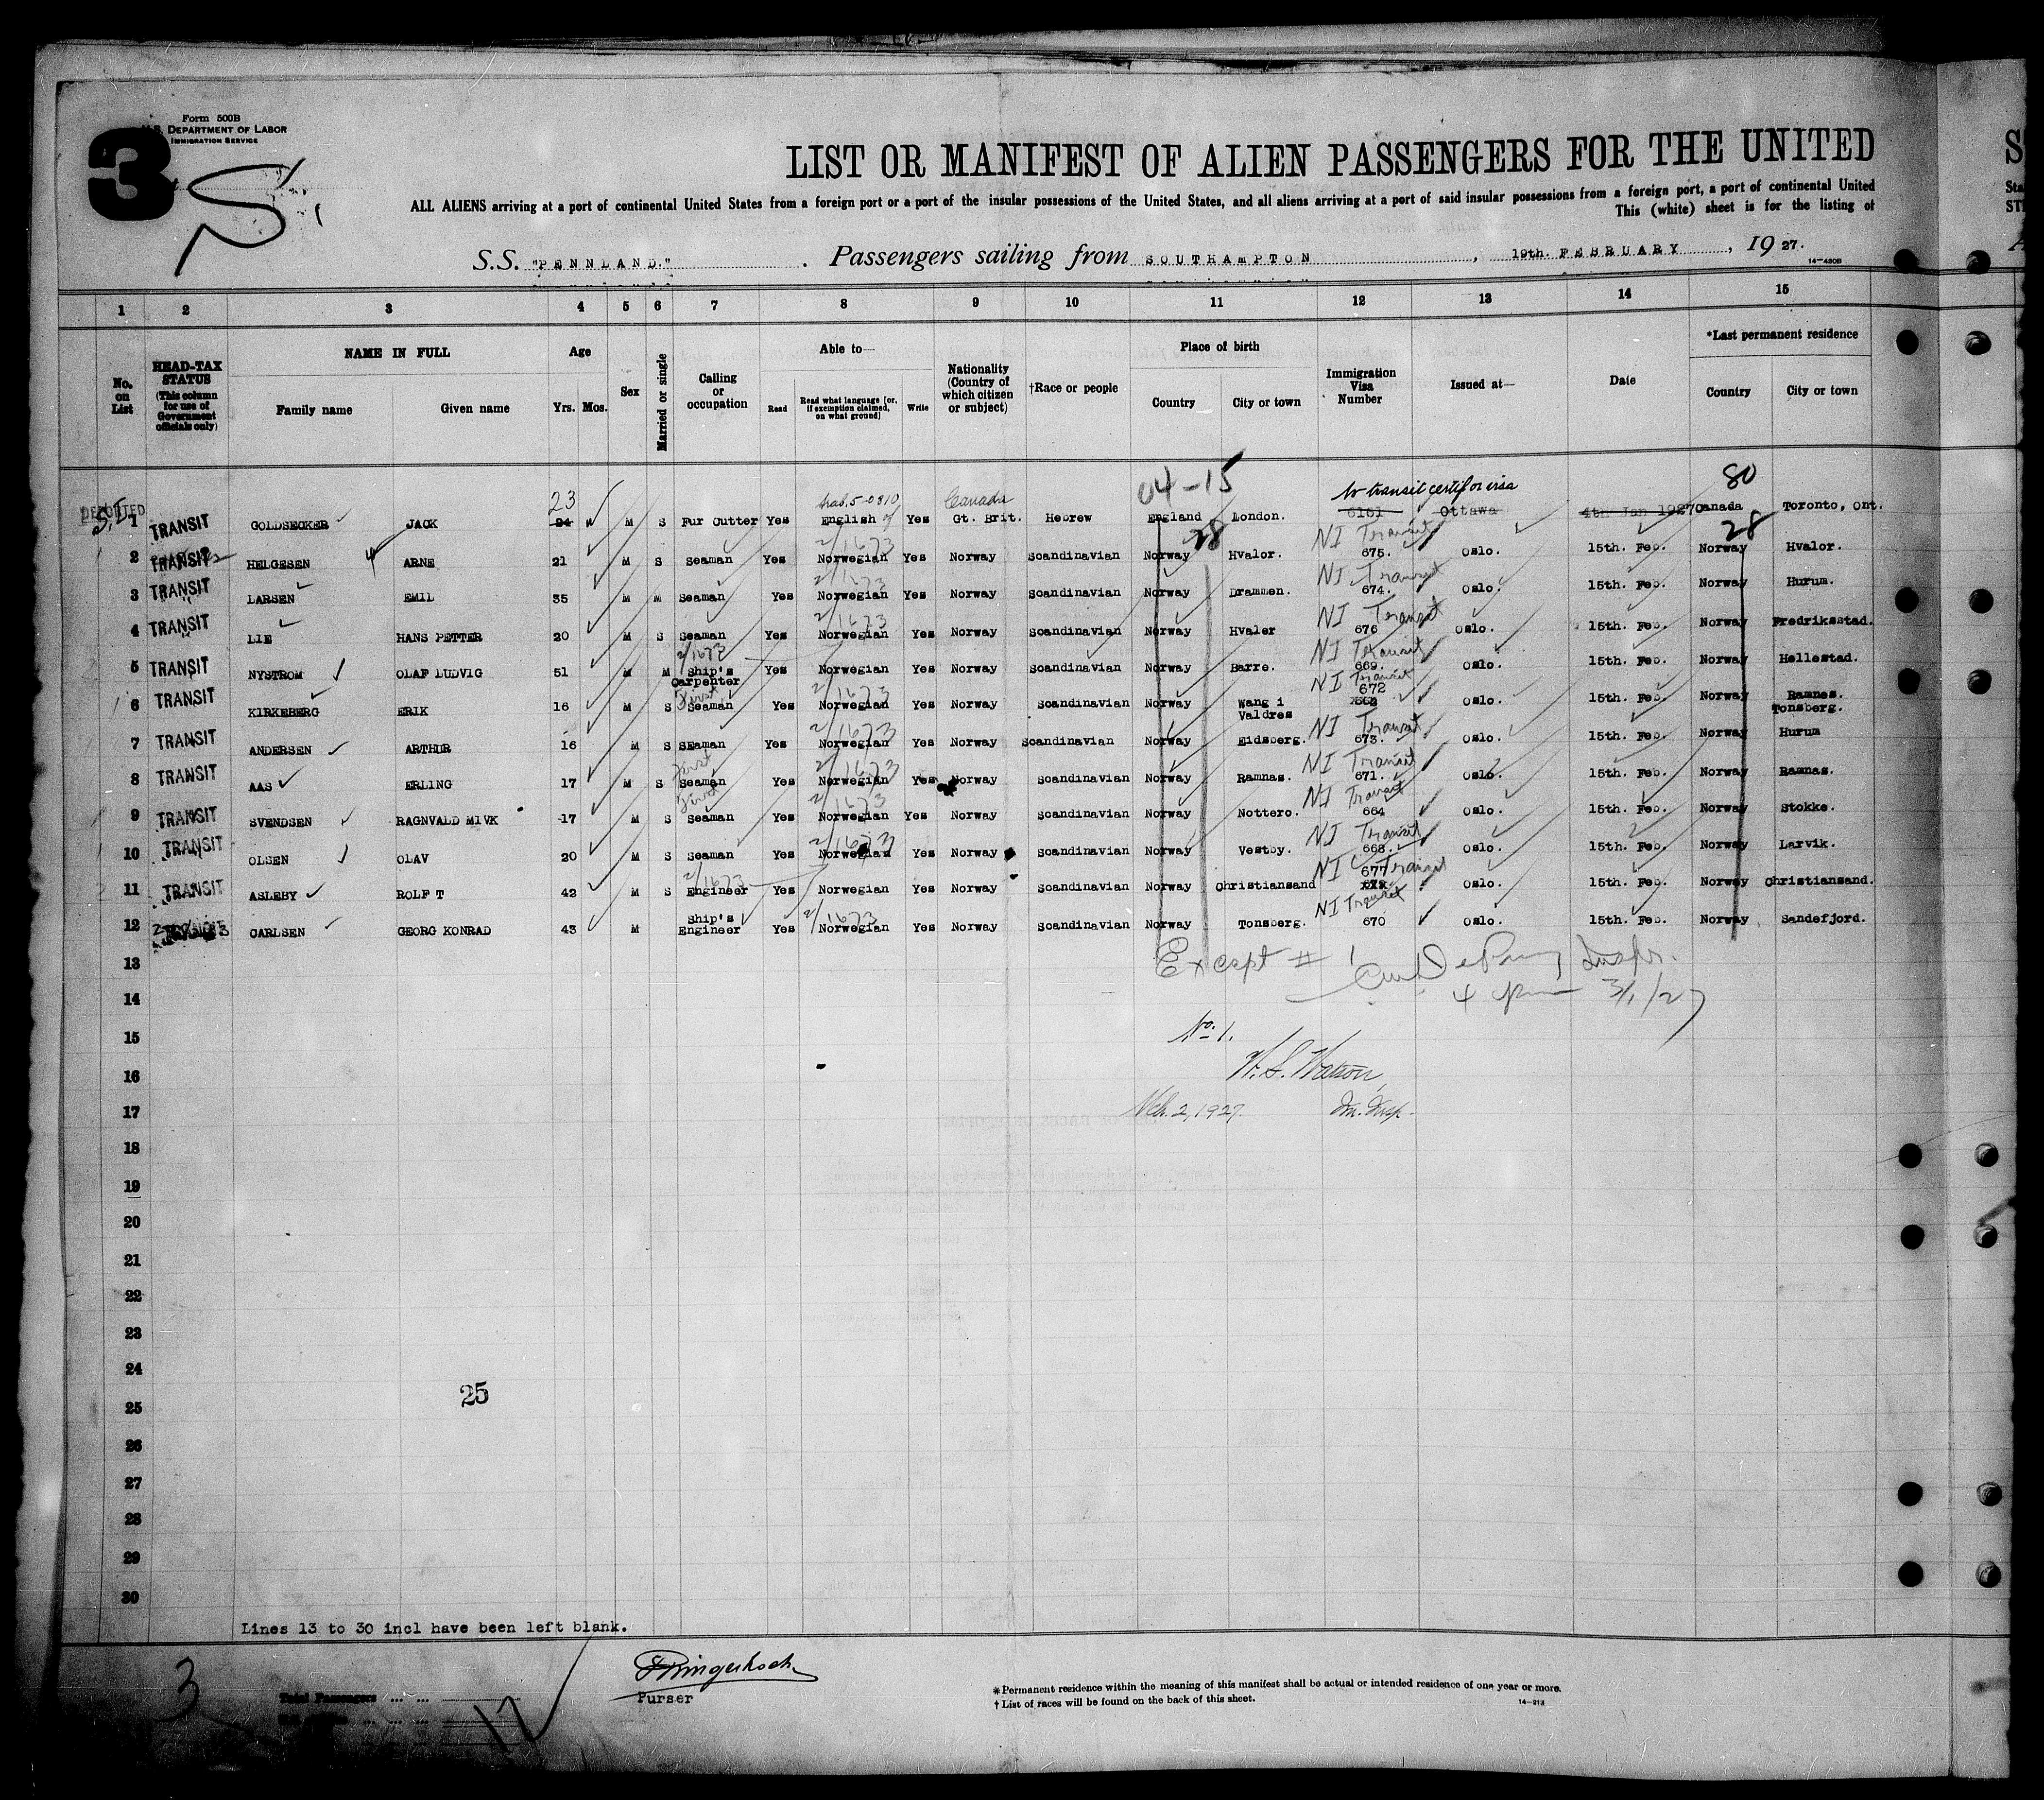 Form 500B
U.S. DEPARTMENT OF LABOR
IMMIGRATION SERVICE
3
S.
LIST OR MANIFEST OF ALIEN PASSENGERS FOR THE UNITED
ALL ALIENS arriving at a port of continental United States from a foreign port or a port of the insular possessions of the United States, and all aliens arriving at a port of said insular possessions from a foreign port, a port of continental United
This (white) sheet is for the listing of
S.S. "PENNLAND." Passengers sailing from SOUTHAMPTON, 19th. FEBRUARY, 1927.
14-430B
1 2 3 4 5 6 7 8 9 10 11 12 13 14 15
No. on List
HEAD-TAX STATUS (This column for use of Government officials only)
NAME IN FULL
Family name Given name
Age Yrs. Mos.
Sex
Married or single
Calling or occupation
Able to—
Read Read what language [or, if exemption claimed, on what ground] Write
Nationality (Country of which citizen or subject)
†Race or people
Place of birth
Country City or town
Immigration Visa Number
Issued at—
Date
*Last permanent residence
Country City or town
23 Canada 04-15 No transit certif or visa 80
DEPORTED
1 TRANSIT GOLDSECKER JACK 24 M S Fur Cutter Yes English Yes Gt. Brit. Hebrew England London. 6161 Ottawa 4th Jan 1927 Canada Toronto, Ont.
2/1673 28 NI Transit 28
2 TRANSIT HELGESEN ARNE 21 M S Seaman Yes Norwegian Yes Norway Scandinavian Norway Hvalor. 675. Oslo. 15th. Feb. Norway Hvalor.
2/1673 NI Transit
3 TRANSIT LARSEN EMIL 35 M M Seaman Yes Norwegian Yes Norway Scandinavian Norway Drammen. 674. Oslo. 15th. Feb. Norway Hurum.
2/1673 NI Transit
4 TRANSIT LIE HANS PETTER 20 M S Seaman Yes Norwegian Yes Norway Scandinavian Norway Hvaler 676 Oslo. 15th. Feb. Norway Fredriksstad.
2/1673 NI Transit
5 TRANSIT NYSTROM OLAF LUDVIG 51 M M Ship's Carpenter Yes Norwegian Yes Norway Scandinavian Norway Barre. 669. Oslo. 15th. Feb. Norway Hellestad.
First 2/1673 NI Transit
6 TRANSIT KIRKEBERG ERIK 16 M S Seaman Yes Norwegian Yes Norway Scandinavian Norway Wang i Valdres 672 Oslo. 15th. Feb. Norway Ramnes. Tonsberg.
2/1673 NI Transit
7 TRANSIT ANDERSEN ARTHUR 16 M S SEaman Yes Norwegian Yes Norway Scandinavian Norway Eidsberg. 673. Oslo. 15th. Feb. Norway Hurum
First 2/1673 NI Transit
8 TRANSIT AAS ERLING 17 M S Seaman Yes Norwegian Yes Norway Scandinavian Norway Ramnas. 671. Oslo. 15th. Feb. Norway Ramnas.
First 2/1673 NI Transit
9 TRANSIT SVENDSEN RAGNVALD MIVK 17 M S Seaman Yes Norwegian Yes Norway Scandinavian Norway Nottero. 664 Oslo. 15th. Feb. Norway Stokke.
2/1673 NI Transit
10 TRANSIT OLSEN OLAV 20 M S Seaman Yes Norwegian Yes Norway Scandinavian Norway Vestby. 668. Oslo. 15th. Feb. Norway Larvik.
2/1673 NI Transit
11 TRANSIT ASLEBY ROLF T 42 M S Engineer Yes Norwegian Yes Norway Scandinavian Norway Christiansand 677 Oslo. 15th. Feb. Norway Christiansand.
2/1673 NI Transit
12 TRANSIT CARLSEN GEORG KONRAD 43 M Ship's Engineer Yes Norwegian Yes Norway Scandinavian Norway Tonsberg. 670 Oslo. 15th. Feb. Norway Sandefjord.
13 Except # 1
14 3/1/27
15 No. 1.
16 Watson
17 Mch. 2, 1927. Im. Insp.
18
19
20
21
22
23
24
25
25
26
27
28
29
30
Lines 13 to 30 incl have been left blank.
3 Total Passengers ... ... 12
Purser
*Permanent residence within the meaning of this manifest shall be actual or intended residence of one year or more.
†List of races will be found on the back of this sheet.
14-213